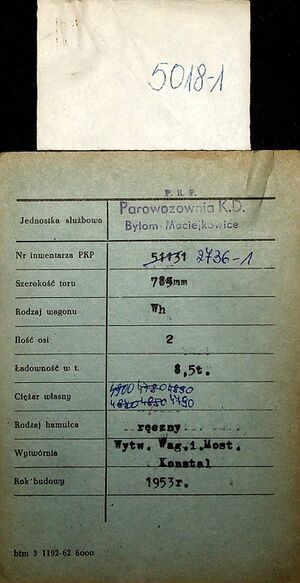 5018-1
P. K. P.
Jednostka służbowa Parowozownia K.D.
Bytom-Maciejkowice
Nr inwentarza PKP 51131 2736-1
Szerokość toru 785mm
Rodzaj wagonu Wh
Ilość osi 2
Ładowność w t. 8,5t.
Ciężar własny 4900 4780 4880
4840 4850 4790
Rodzaj hamulca ręczny
Wytwórnia Wytw. Wag.i.Most.
Konstal
Rok budowy 1953r.
btm 3 1192-62 6000